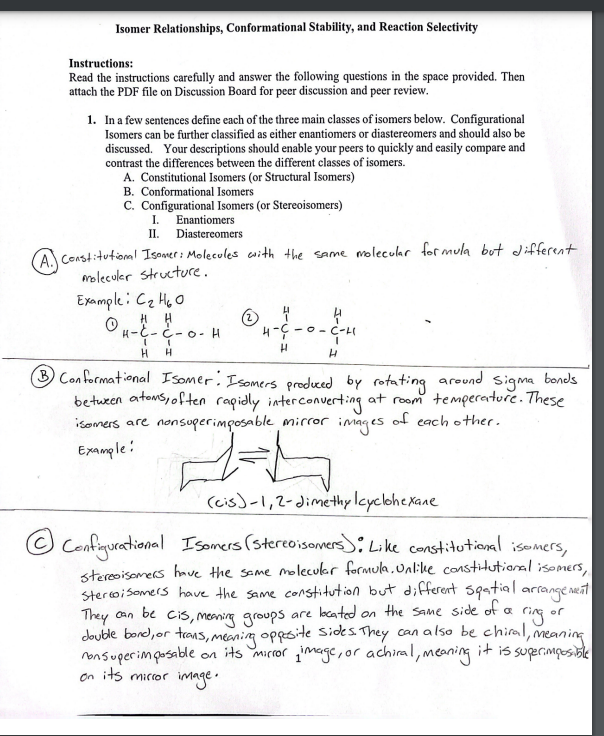 Isomer Relationships, Conformational Stability, and Reaction Selectivity
Instructions:
Read the instructions carefully and answer the following questions in the space provided. Then
attach the PDF file on Discussion Board for peer discussion and peer review.
1. In a few sentences define each of the three main classes of isomers below. Configurational
Isomers can be further classified as either enantiomers or diastereomers and should also be
discussed. Your descriptions should enable your peers to quickly and easily compare and
contrast the differences between the different classes of isomers.
A. Constitutional Isomers (or Structural Isomers)
B. Conformational Isomers
C. Configurational Isomers (or Stereoisomers)
I. Enantiomers
II. Diastereomers
A. Constitutional Isomer: Molecules with the same molecular formula but different
molecular structure.
Example: C2H6O
① H H
H-C-C-O-H
H H
② H H
H-C-O-C-H
H H
B Conformational Isomer: Isomers produced by rotating around sigma bonds
between atoms, often rapidly interconverting at room temperature. These
isomers are nonsuperimposable mirror images of each other.
Example:
(cis)-1,2-dimethylcyclohexane
C Configurational Isomers (stereoisomers): Like constitutional isomers,
stereoisomers have the same molecular formula. Unlike constitutional isomers,
stereoisomers have the same constitution but different spatial arrangement
They can be cis, meaning groups are located on the same side of a ring or
double bond, or trans, meaning opposite sides. They can also be chiral, meaning
nonsuperimposable on its mirror image, or achiral, meaning it is superimposible
on its mirror image.